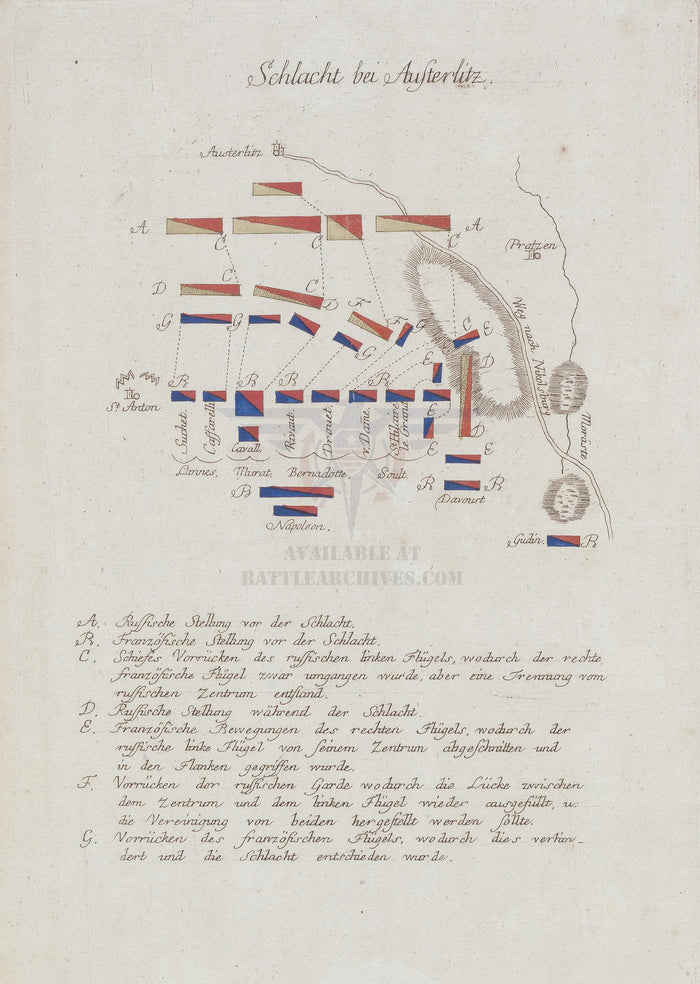 Schlacht bei Austerlitz.
Austerlitz
A
A
C
C
C
Pratzen
C
C
D
F
G
G
F
G
C
E
G
Weg nach Nikolsburg
E
D
R
R
R
R
R
St Anton
Suchet
Caffarelli
Cavall.
Rivaut
Drouet
v. Dame
St Hilaire
le Grand
E
D
E
Moräste
Lannes, Murat, Bernadotte, Soult.
R
R
R
Davoust
Napoleon.
Gudin.
R
AVAILABLE AT
BATTLEARCHIVES.COM
A. Russische Stellung vor der Schlacht.
R. Französische Stellung vor der Schlacht.
C. Schiefes Vorrücken des russischen linken Flügels, wodurch der rechte
französische Flügel zwar umgangen wurde, aber eine Trennung vom
russischen Zentrum entstand.
D. Russische Stellung während der Schlacht.
E. Französische Bewegungen des rechten Flügels, wodurch der
russische linke Flügel von seinem Zentrum abgeschnitten und
in den Flanken gegriffen wurde.
F. Vorrücken der russischen Garde wodurch die Lücke zwischen
dem Zentrum und dem linken Flügel wieder ausgefüllt, u:
die Vereinigung von beiden hergestellt werden sollte.
G. Vorrücken des französischen Flügels, wodurch dies verhin-
dert und die Schlacht entschieden wurde.